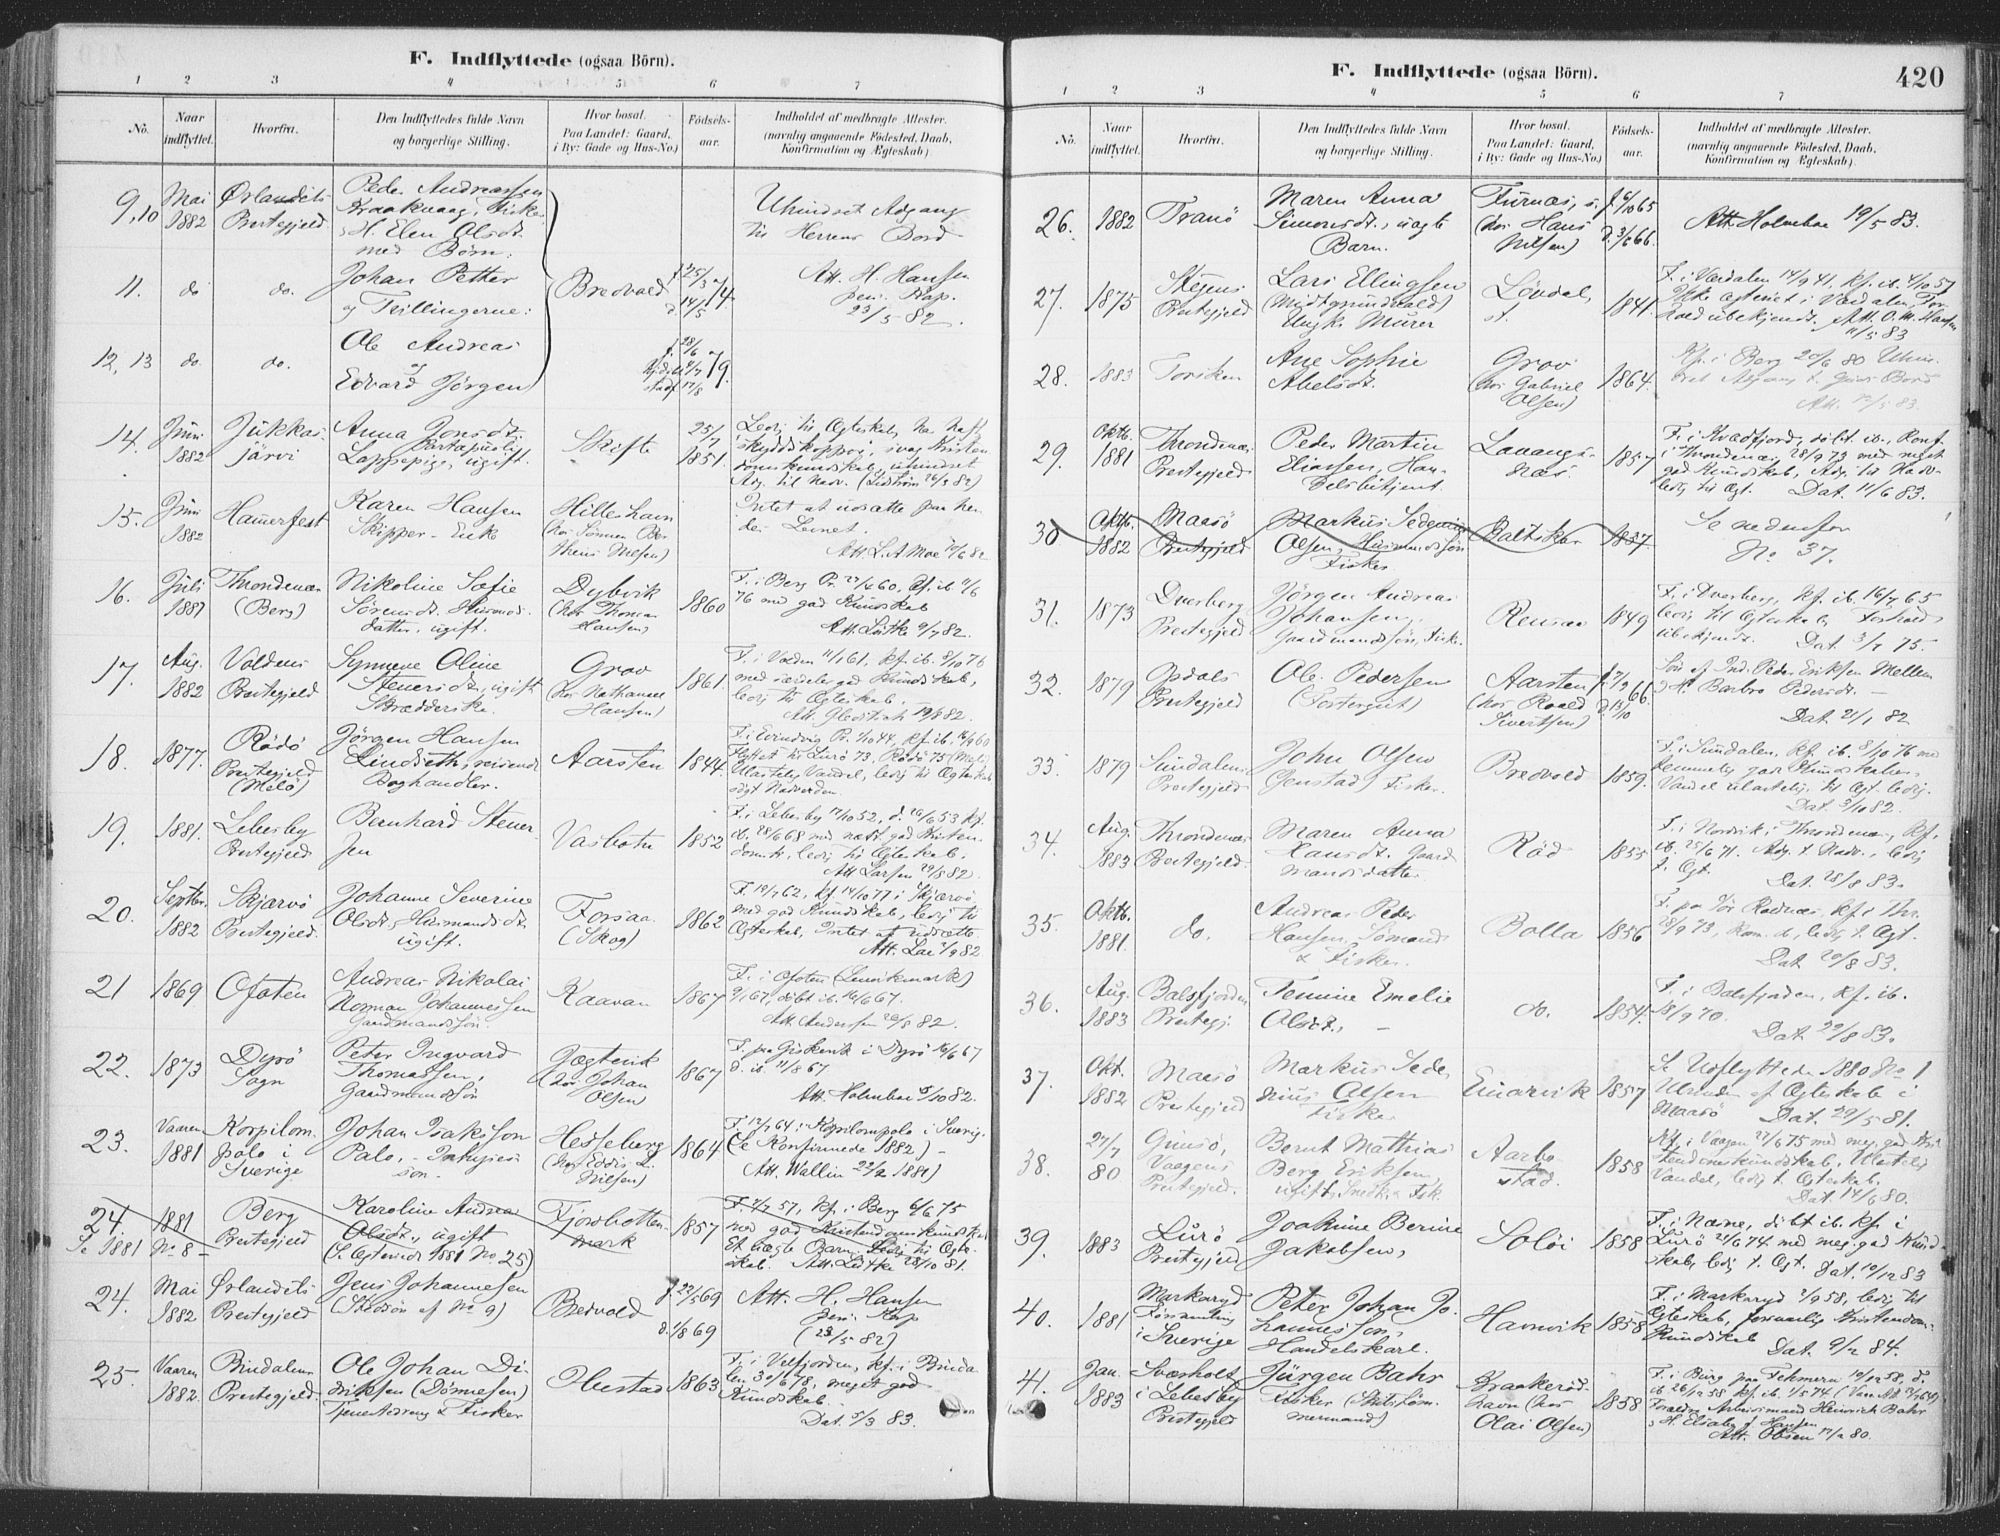 F. Indflyttede (ogsaa Börn).
1 2 3 4 5 6 7
No.
Naar indflyttet.
Hvorfra.
Den Indflyttedes fulde Navn
og borgerlige Stilling.
Hvor bosat.
Paa Landet: Gaard,
i By: Gade og Hus-No.)
Födsels-
aar.
Indholdet af medbragte Attester.
(navnlig angaaende Födested, Daab,
Konfirmation og Ægteskab).
9,10 Mai 1882 Ørlandets Prestegjeld
Peder Andreassen
Kraakvaag, Fisker
, H. Elen Olsdt.
med Børn:
Uhindret Adgang
til Herrens Bord
11. do do. Johan Petter
og Tvillingerne:
Bredvold f. 25/3 d. 14/5 74.
Att. H. Hansen
pen. Kap.
23/5 82.
12, 13 do. do. Ole Andreas
og
Edvard Jørgen
f. 28/6 79.
14. Juni 1882 Jukkasjärvi
Anna Jonsdt.
Lappepige, ugift.
Skifte 25/7 1851.
Ledig til Ægteskab,
15. Juni 1882 Hamerfest
Karen Hansen
Skipper-Enke
Hilleshavn
(hos Sönnen Bertheus Nilsen)
Intet at udsætte paa hendes Levnet.
Att. L. A. Moe
16. Juli Throndenæs (Berg)
Nikoline Sofie
Sörensdt. Husmands-
datter, ugift.
Dybvik
(hos Thomas Hansen)
1860
F. i Berg Pr. 27/6 60, kf. ib. 76 med god Kundskab
Att. Lütke 9/7 82.
17. Aug. 1882 Voldens Prestegjeld
Synneve Oline
Steversdt., ugift
Skrædderske.
Grov
(hos Nathanael Hansen)
1861.
F. i Volden 11/1 61, kf. ib. 8/10 76
med særdeles god Kundskab,
ledig til Ægteskab.
18. 1877. Rödö Prestegjeld (Melö)
Jörgen Hansen
Lindseth, reisende
Boghandler.
Aarsten 1844.
Ulastelig Vandel, ledig til Ægteskab
19. 1881. Lebesby Prestegjeld
Bernhard Stener-
sen
Vasbotn 1852
F. i Lebesby 17/10 52,
ledig til Ægteskab.
Att. Larsen 29/8 82.
20. Septbr. 1882 Skjærvö Prestegjeld.
Johanne Severine
Olsdt., Husmandsdt.
ugift.
Forsaa.
(Skog)
1862
F. 19/7 62, kf. 14/10 77 i Skjærvö
med god Kundskab, ledig til
Ægteskab, Intet at udsætte.
21 1869 Ofoten
Andreas Nikolai
Norman Johannessen
Gaardmandssön.
Kaavan 1867
F. i Ofoten (Lenvikmark)
9/1 67, döbt ib. 16/6 67.
Att. Anderssen 20/8 82.
22. 1873 Dyrö Sogn
Peter Ingvard
Thomassen,
Gaardmandssön
Jægtevik
(hos Johan Olsen)
1867
F. paa Giskevik i Dyrö 16/6 67
d. ib. 11/8 67
Att. Holmboe 5/10 82.
23. Vaaren 1881 Korpilompolo i Sverige
Johan Isaksson
Palo,
Hesseberg
1864
F. 12/7 64 i Korpilompolo i Sverig.
(Se Konfirmede 1882) –
Att. Wallin 22/2 1881)
24. 1881 Berg Prestegjeld
Se 1881 No. 8 –
Karoline Andrea
Olsdt., ugift
(Se Ægteviede 1881 No. 25)
Fjordbotten-
mark
1857
F. 7/7 57, kf. i Berg 6/6 75
med god Kristendomskundskab
Et uægte Barn. Ledig til Ægte-
skab. Att. Lütke 28/10 81.
24. Mai 1882 Ørlandets Prestegjeld
Jens Johannesen
(Stedsön af No. 9)
Bredvold
f. 22/5 69
d. 1/8 69
Att. H. Hansen
pen. Kap
(23/5 82)
25. Vaaren 1882. Bindalens Prestegjeld.
Ole Johan Di-
driksen (Dönnesen)
Tjenestedreng & Fisker
Olestad 1863
F. i Velfjorden, kf. i Binda-
len 30/6 78, meget god
Kundskab.
Dat. 5/3 83.
F. Indflyttede (ogsaa Börn). 420
1 2 3 4 5 6 7
No.
Naar indflyttet.
Hvorfra.
Den Indflyttedes fulde Navn
og borgerlige Stilling.
Hvor bosat.
Paa Landet: Gaard,
i By: Gade og Hus-No.)
Födsels-
aar.
Indholdet af medbragte Attester.
(navnlig angaaende Födested, Daab,
Konfirmation og Ægteskab).
26. 1882 Tranö
Maren Anna
Simonsdt., uægte
Barn.
Furnæs,
(hos Hans Nilsen)
f. 6/10 65
d. 3/6 66.
Att. Holmboe 19/5 83.
27. 1875 Stegens Prestegjeld
Lars Ellingsen
(Midtgrundvald)
Ungk. Murer
Lövdal,
1841.
F. i Værdalen 14/9 41, kf. ib. 4/10 57
Ikke ægteviet i Værdalen, For-
hold ubekjendt. Att. O. M. Hansen
11/5 83
28. 1883 Torsken
Ane Sophie
Abelsdt.
Grov
(hos Gabriel Olsen)
1864.
Kf. i Berg 20/6 80 Uhin-
dret Adgang t. Guds Bord
Att. 12/5 83.
29. Oktb. 1881 Throndenæs Prestegjeld
Peder Martin
Eliassen, Han-
delsbetjent.
Lavangs-
næs.
1857
F. i Kvædfjord, döbt ib., Konf.
i Throndenæs 28/9 73 med meget
god Kundskab, Adg. til Nadv.
ledig til Ægt. Dat. 11/6 83.
30 Oktb. 1882 Maasö Prestegjeld
Markus Sedenius
Olsen, Husmandssön
Fisker
Baltsker 1857
Se nedenfor
No. 37.
31. 1873 Dverberg Prestegjeld
Jörgen Andreas
Johansen,
Gaardmandssön, Fisk.
Rensaa 1849
F. i Dverberg, kf. ib. 16/7 65
ledig til Ægteskab, Forhold
ubekjendt. Dat. 3/7 75.
32. 1879 Opdals Prestegjeld
Ole Pedersen
(Fostergut)
Aarsten
(hos Roald Sivertsen)
Sön af Ind. Peder Eriksen Mellem
, H. Barbro Pedersdt. –
Dat. 21/1 82
33. 1879 Sundalens Prestegjeld
John Olsen
Gjenstad, Fisker.
Bredvold 1859.
F. i Sundalen, kf. ib. 8/10 76 med
temmelig god Kundskaber,
Vandel ulastelig, til Ægt. ledig.
Dat. 3/1 82.
34. Aug. 1883 Throndenæs Prestegjeld.
Maren Anna
Hansdt. Gaard-
mandsdatter
Röd 1855
F. i Nordvik i Throndenæs, kf.
ib. 25/6 71. Adg. t. Nadv., ledig
t. Ægt. Dat. 28/8 83.
35. Oktb. 1881. do.
Andreas Peder
Hansen, Sömand
& Fisker.
Bolla 1856
28/9 73, Kom. d., ledig t. Ægt.
Dat 20/8 83.
36. Aug. 1883 Balsfjordens Prestegj.
Femine Emelie
Olsdt., –
do. 1854.
F. i Balsfjorden, kf. ib.
18/9 70.
Dat. 29/8 83.
37. Okt. 1882 Maasö Prestegjeld
Markus Sede-
nius Olsen
Fisker
Einarvik 1857
Se Udflyttede 1880 No 1
Udenfor af Ægteskab i
Maasö Dat. 29/5 81.
38. 27/7 80 Gimsö, Vaagens Prestegjeld.
Bernt Mathias
Berg Eriksen,
ugift, Snedker Fisk.
Aarbo-
stad.
1858
Kf. i Vaagan 27/6 75 med meg. god Kri-
stendomskundskab, Ulastelig
Vandel, ledig t. Ægteskab.
Dat. 14/6 80.
39. 1883 Lurö Prestegjeld
Joakime Berine
Jakobsen,
Solöi 1858
F. i Næsne, döbt ib. kf. i
Lurö 21/6 74 med meg. god Kund-
skab, ledig t. Ægt. Dat. 10/12 83
40. 1881 Markaryd Församling i Sverige
Peter Johan Jo-
hannesson,
Handelskarl.
Havnvik 1858
F. i Markaryd 2/9 58, ledig til
Ægteskab, forsvarlig Kristendom-
Kundskab
Dat. 9/2 84.
41. Jan. 1883 Sværholt i Lebesby Prestegjeld
Jürgen Bahr
Fisker
Kraakeröd-
havn (hos Olai Olsen)
1858
F. i Burg paa Fehmern 10/12 58, d.
ib. 26/12 58 kf. ib.
Forældre Arbeidsmand Heinrich Bahr
, H. Elsabe f. Hansen
Att. Olsen 17/2 80.